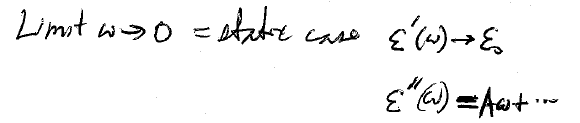 Limit ω→0 = static case ε'(ω)→ε₀
ε''(ω) = Aω+ ⋯